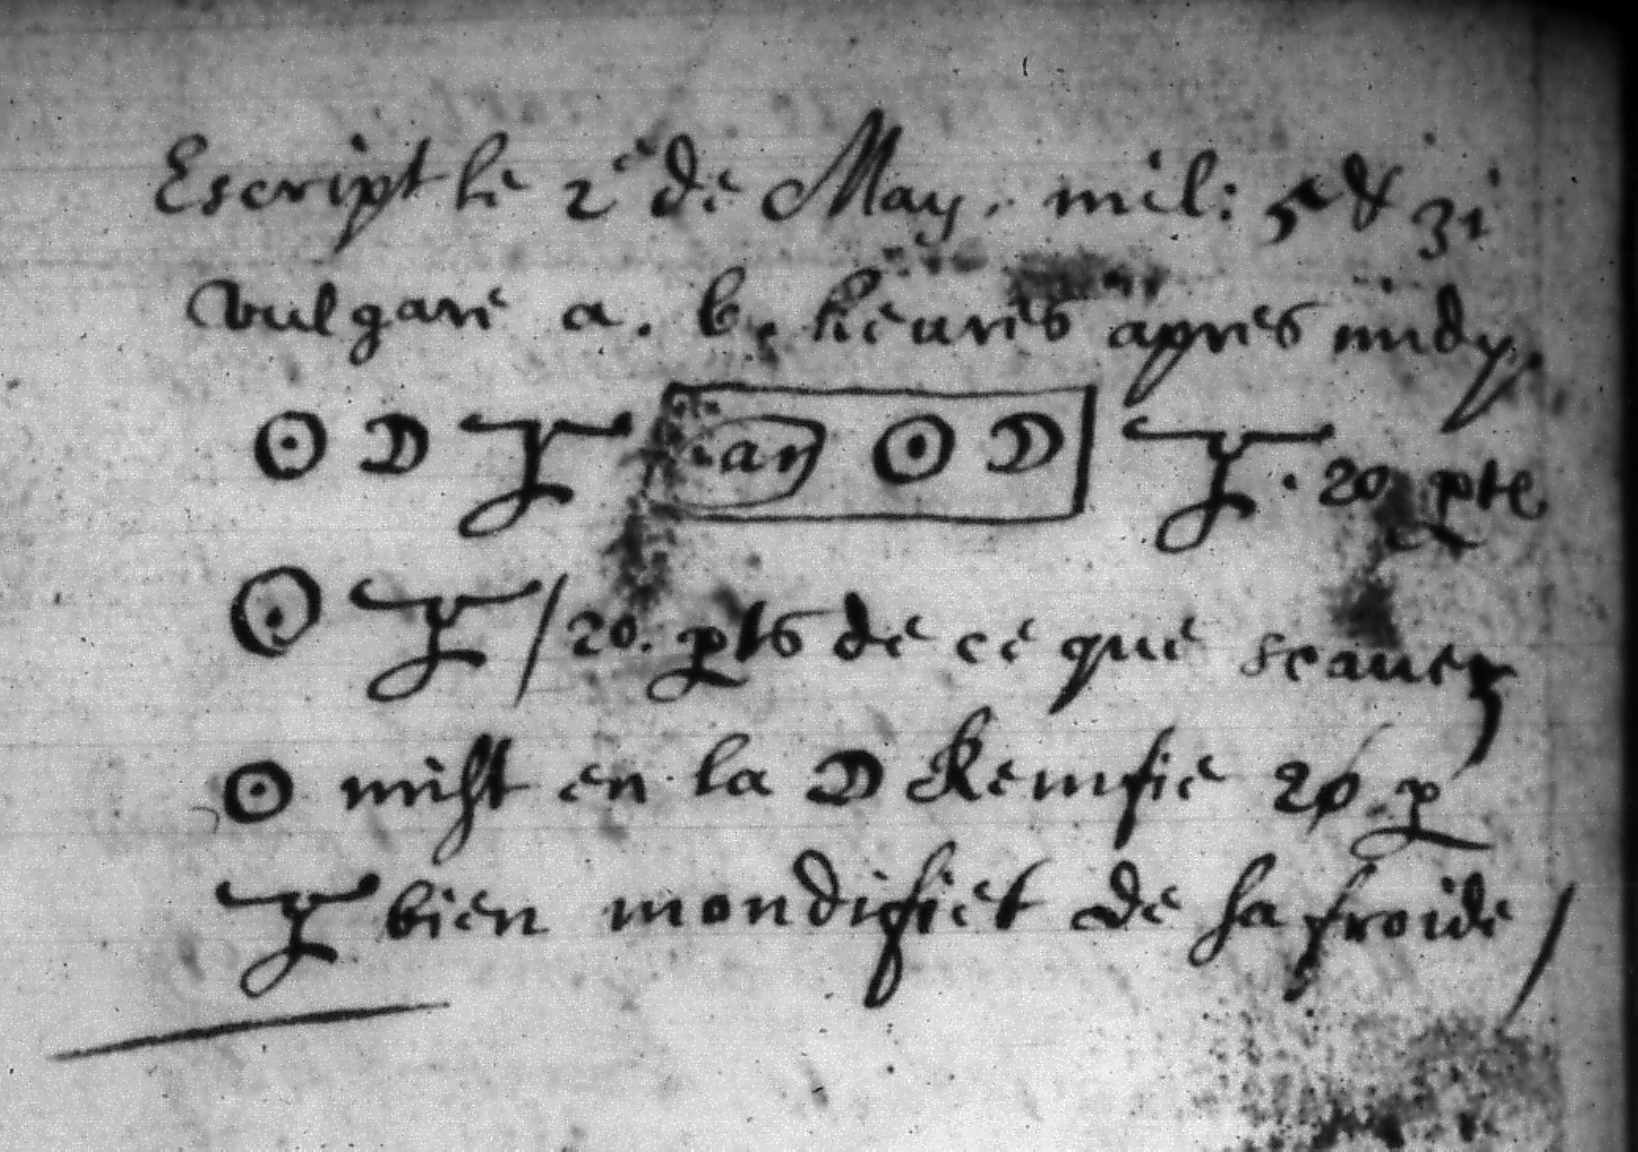 Escript le 2e de May. mil: 5 & 31
vulgare a. 6. heures apres midy.
☉ ☽ ☿ ☉ ☽ ☿ . 20 pte
☉ ☿ / 20. pts de ce que scauez
☉ mist en la ☽ 20. p
☿ bien mondifiet de sa froide /